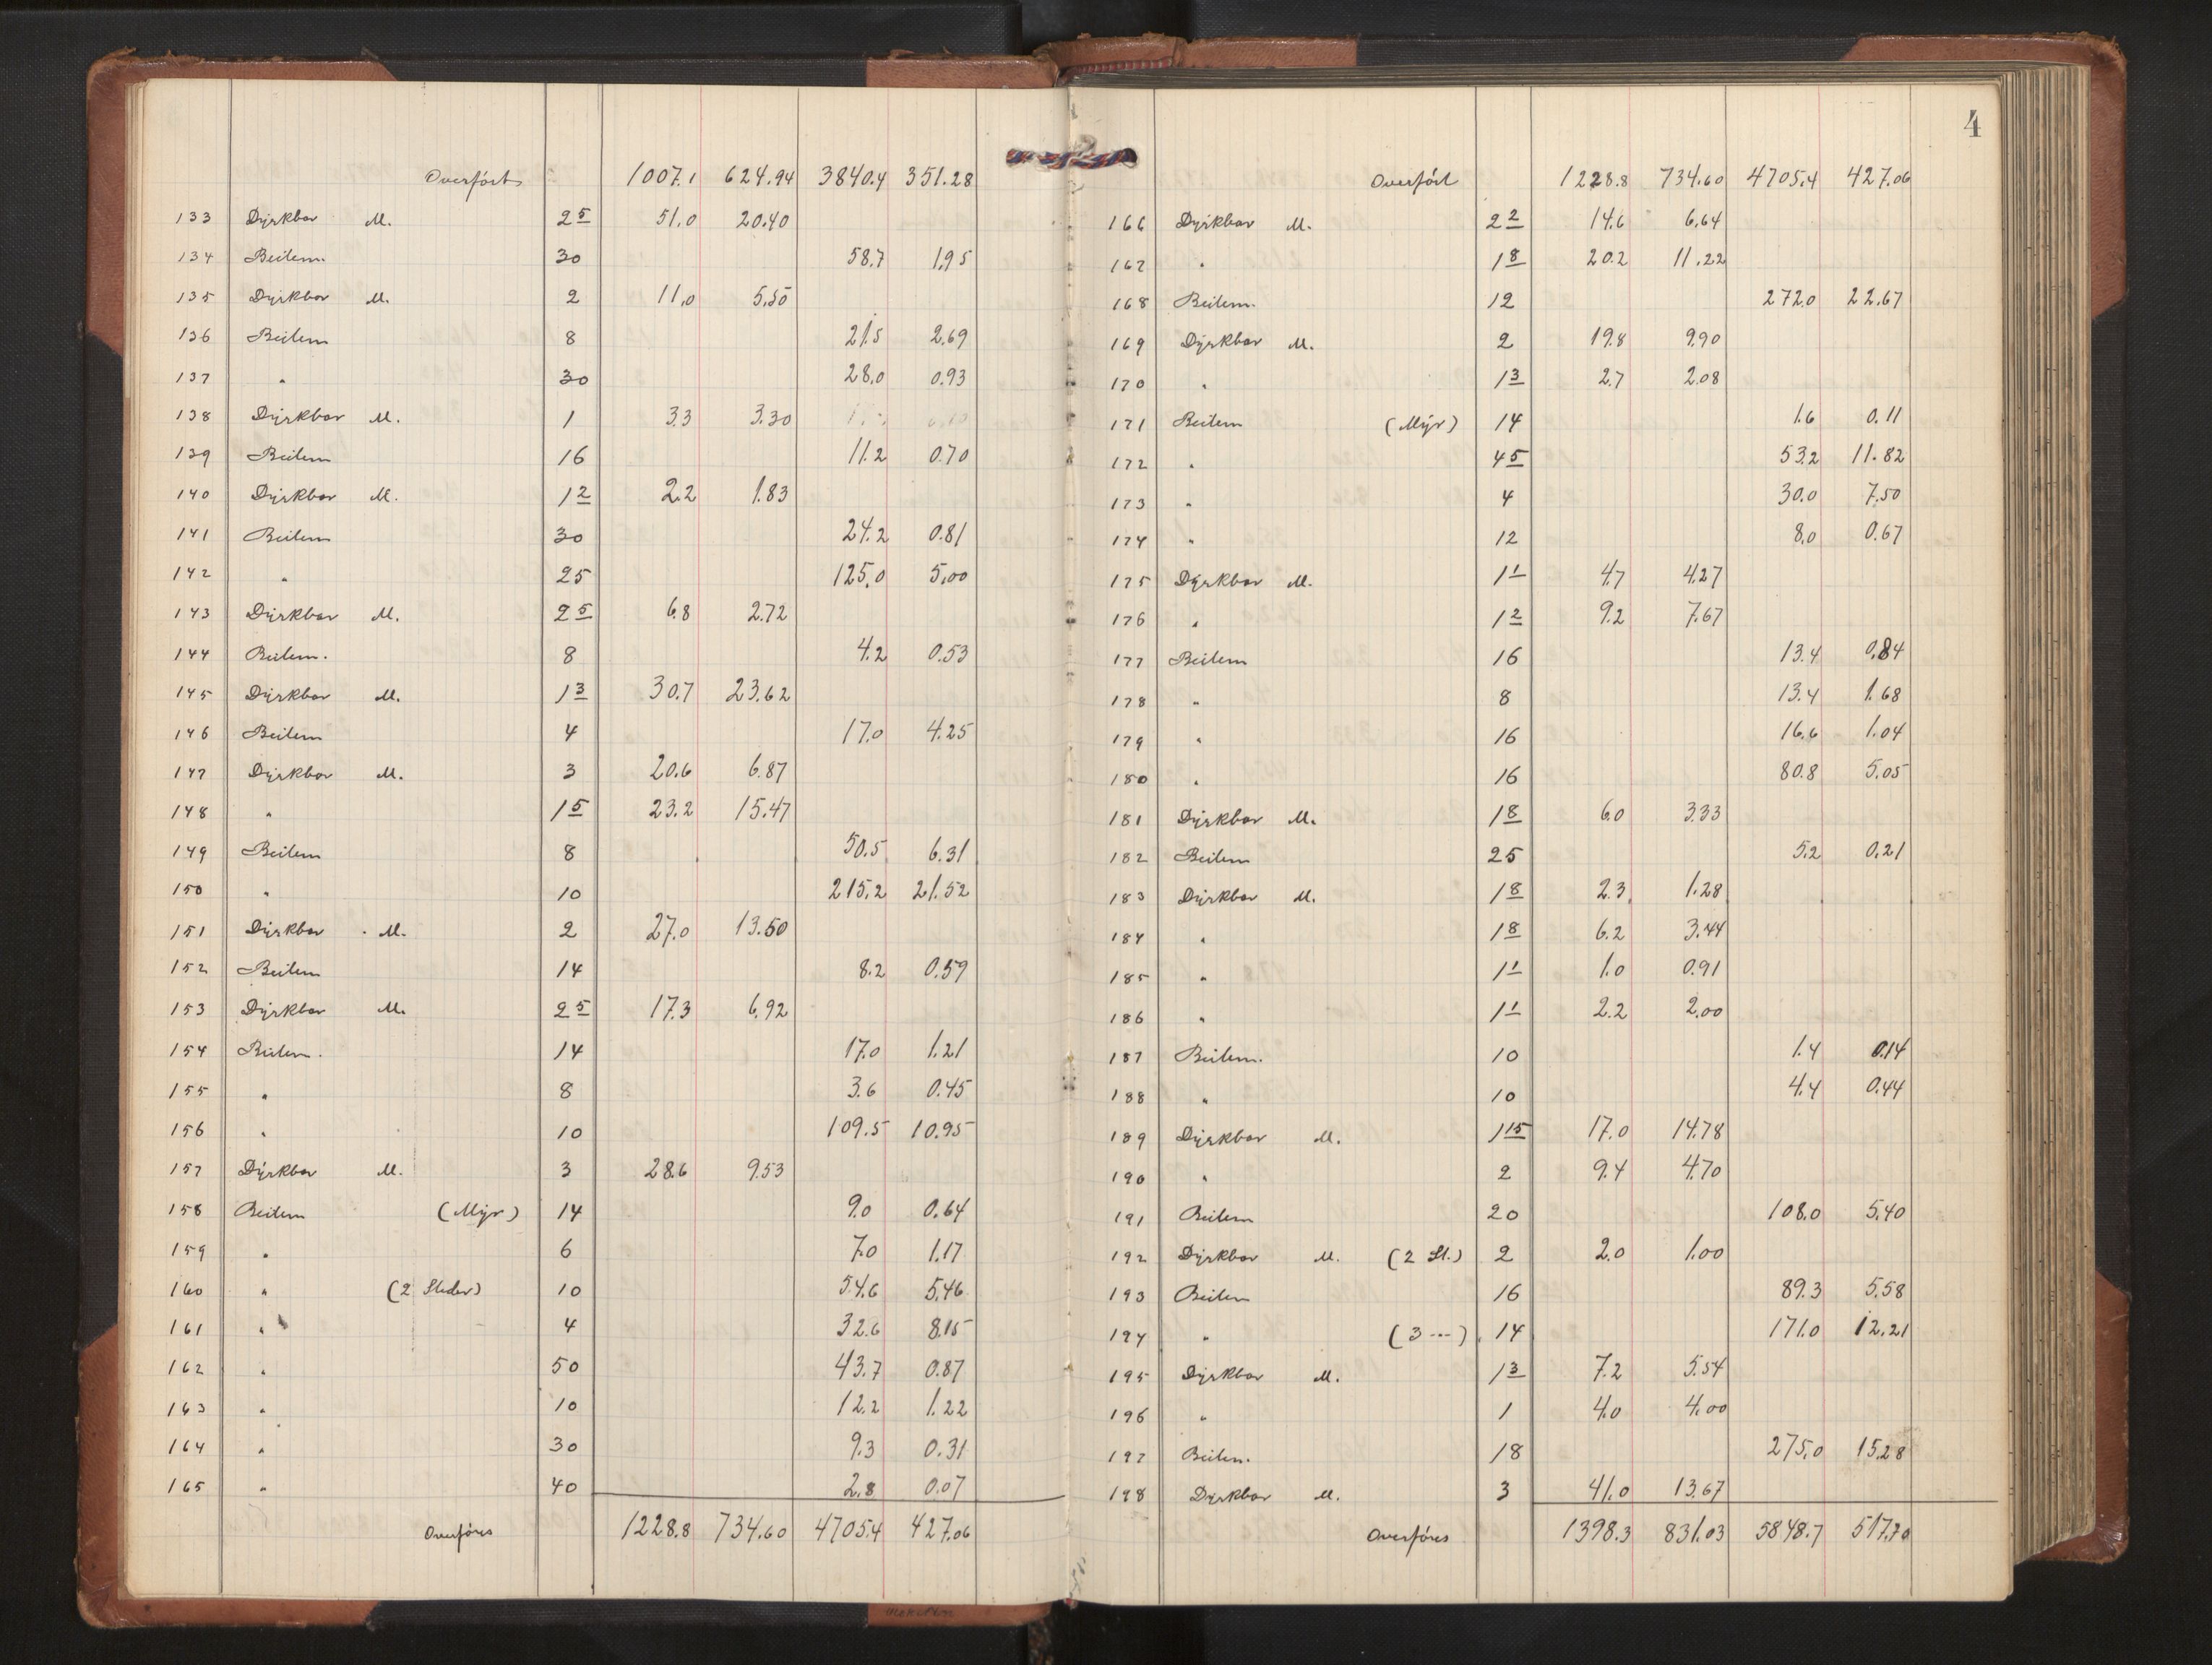 Overført 1007.1 624.94 3840.4 351.28
133 Dyrkbar M. 2 5 51.0 20.40
134 Beitem. 30 58.7 1.95
135 Dyrkbar M. 2 11.0 5.50
136 Beitem 8 21.5 2.69
137 " 30 28.0 0.93
138 Dyrkbar M. 1 3.3 3.30
139 Beitem 16 11.2 0.70
140 Dyrkbar M. 1 2 2.2 1.83
141 Beitem 30 24.2 0.81
142 " 25 125.0 5.00
143 Dyrkbar M. 2 5 6.8 2.72
144 Beitem. 8 4.2 0.53
145 Dyrkbar M. 1 3 30.7 23.62
146 Beitem 4 17.0 4.25
147 Dyrkbar M. 3 20.6 6.87
148 " 1 5 23.2 15.47
149 Beitem 8 50.5 6.31
150 " 10 215.2 21.52
151 Dyrkbar M. 2 27.0 13.50
152 Beitem 14 8.2 0.59
153 Dyrkbar M. 2 5 17.3 6.92
154 Beitem. 14 17.0 1.21
155 " 8 3.6 0.45
156 " 10 109.5 10.95
157 Dyrkbar M. 3 28.6 9.53
158 Beitem (Myr) 14 9.0 0.64
159 " 6 7.0 1.17
160 " (2 Steder) 10 54.6 5.46
161 " 4 32.6 8.15
162 " 50 43.7 0.87
163 " 10 12.2 1.22
164 " 30 9.3 0.31
165 " 40 2.8 0.07
Overføres 1228.8 734.60 4705.4 427.06
4
Overført 1228.8 734.60 4705.4 427.06
166 Dyrkbar M. 2 2 14.6 6.64
167 " 1 8 20.2 11.22
168 Beitem. 12 272.0 22.67
169 Dyrkbar M. 2 19.8 9.90
170 " 1 3 2.7 2.08
171 Beitem (Myr) 14 1.6 0.11
172 " 4 5 53.2 11.82
173 " 4 30.0 7.50
174 " 12 8.0 0.67
175 Dyrkbar M. 1 1 4.7 4.27
176 " 1 2 9.2 7.67
177 Beitem 16 13.4 0.84
178 " 8 13.4 1.68
179 " 16 16.6 1.04
180 " 16 80.8 5.05
181 Dyrkbar M. 1 8 6.0 3.33
182 Beitem 25 5.2 0.21
183 Dyrkbar M. 1 8 2.3 1.28
184 " 1 8 6.2 3.44
185 " 1 1 1.0 0.91
186 " 1 1 2.2 2.00
187 Beitem. 10 1.4 0.14
188 " 10 4.4 0.44
189 Dyrkbar M. 1 15 17.0 14.78
190 " 2 9.4 4.70
191 Beitem 20 108.0 5.40
192 Dyrkbar M. (2 St.) 2 2.0 1.00
193 Beitem 16 89.3 5.58
194 " (3 ---) 14 171.0 12.21
195 Dyrkbar M. 1 3 7.2 5.54
196 " 1 4.0 4.00
197 Beitem. 18 275.0 15.28
198 Dyrkbar M. 3 41.0 13.67
Overføres 1398.3 831.03 5848.7 517.70